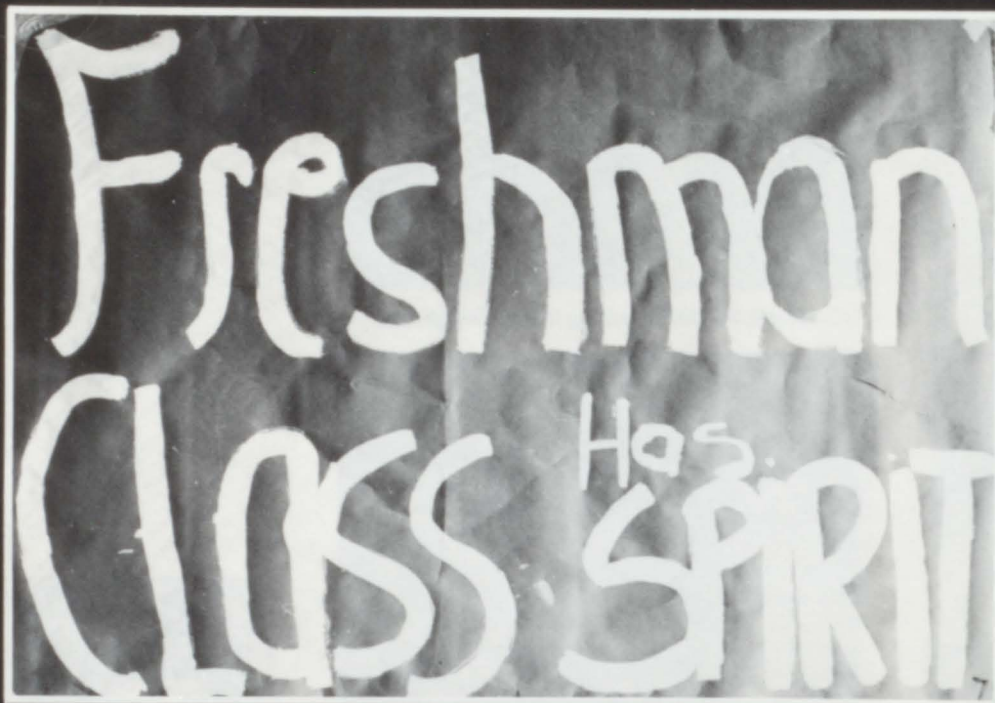 Freshman
Class Has
SPiRiT
7